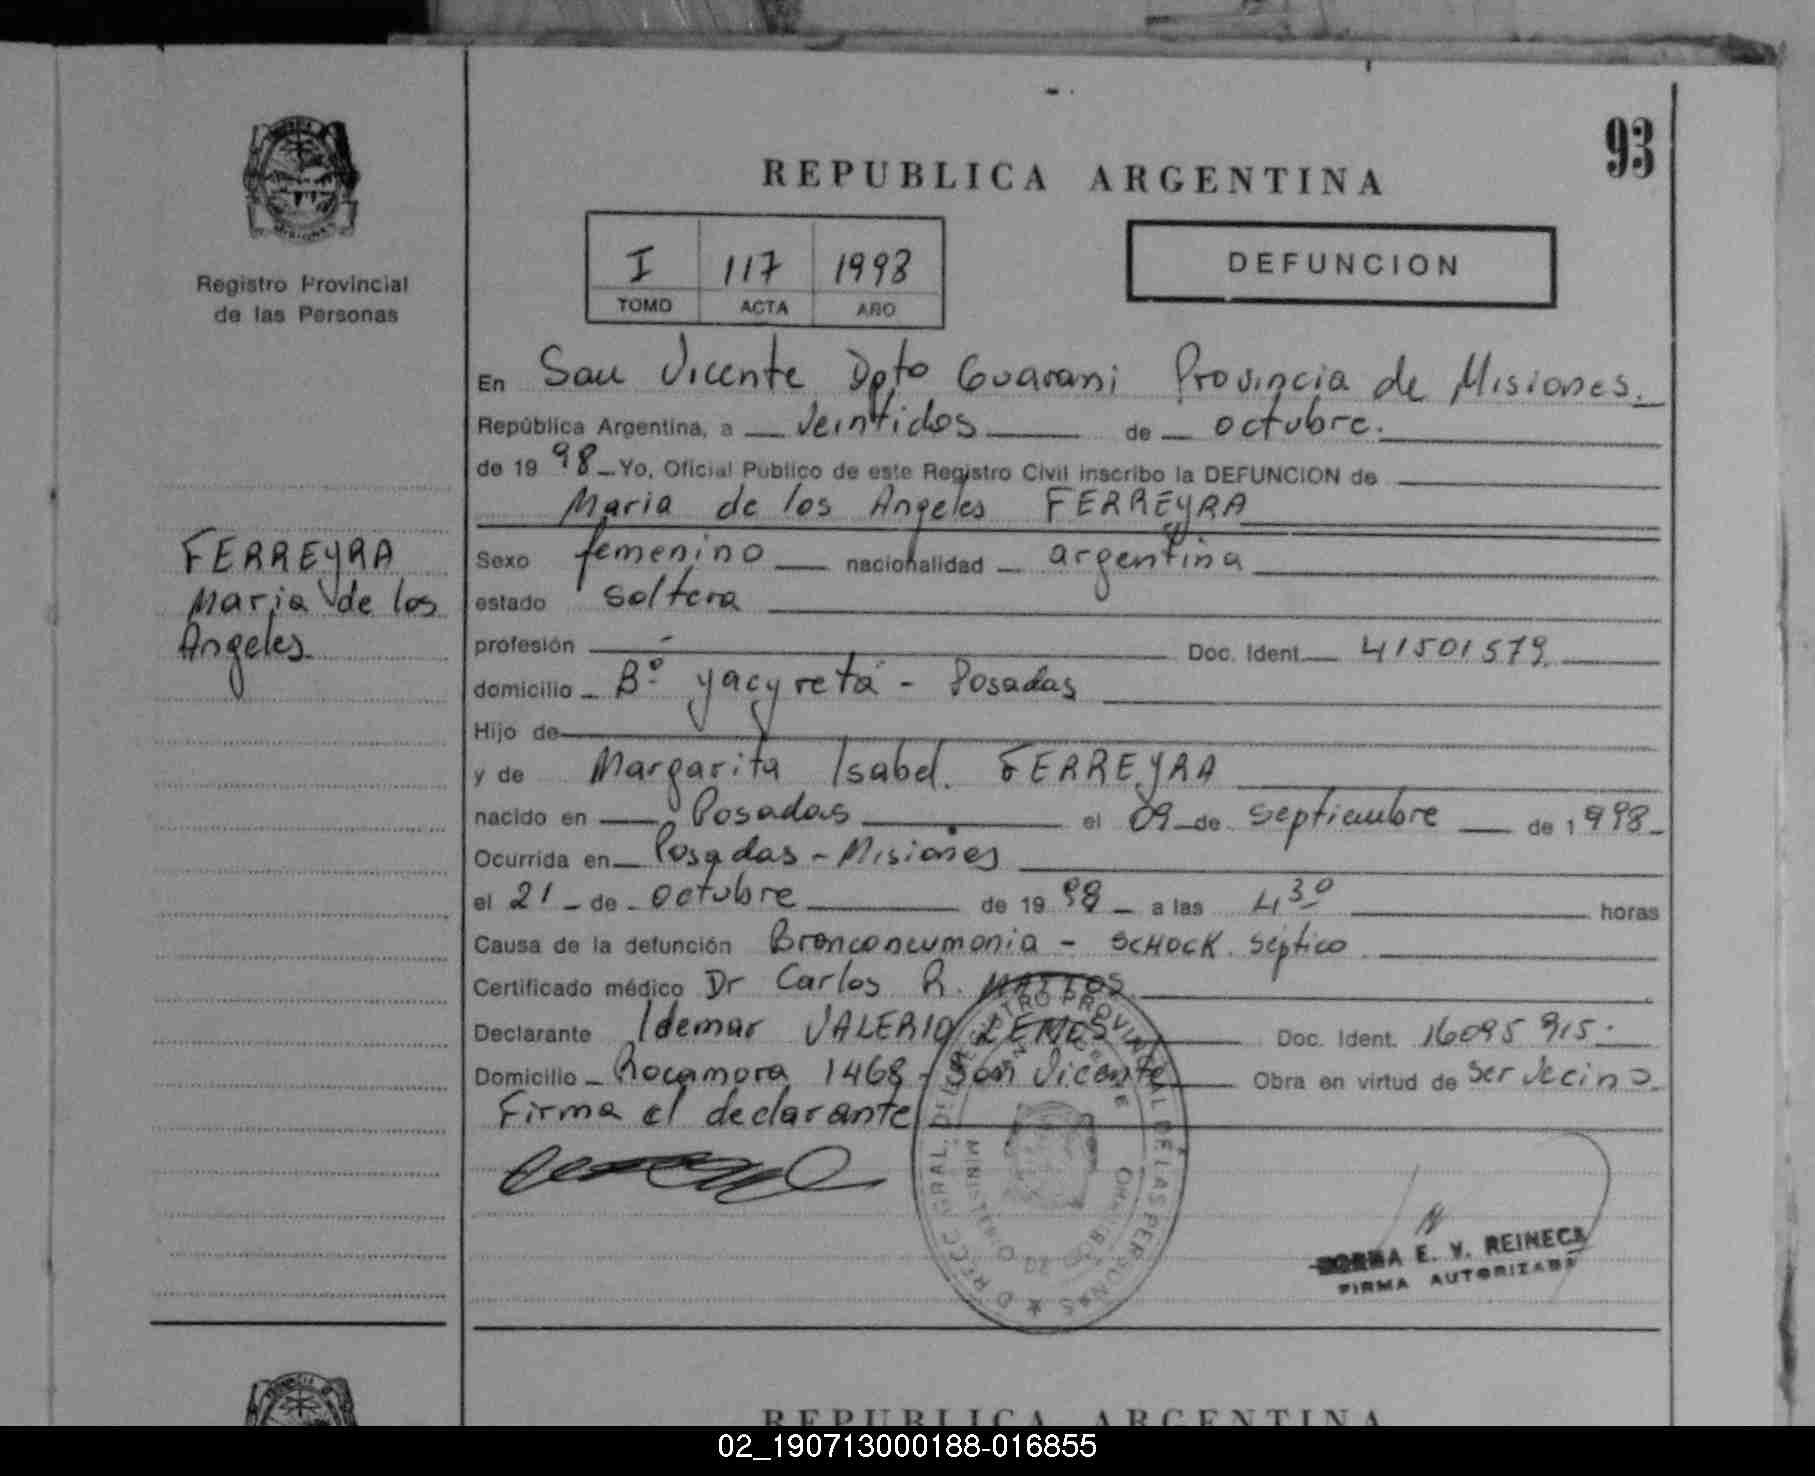 93
REPUBLICA ARGENTINA
DEFUNCION
I 117 1998
TOMO ACTA AÑO
Registro Provincial
de las Personas
En San Vicente Dpto Guarani Provincia de Misiones.
República Argentina, a veintidos de octubre.
de 19 98 Yo, Oficial Público de este Registro Civil inscribo la DEFUNCION de
Maria de los Angeles FERREYRA
FERREYRA
Maria de los
Angeles
Sexo femenino nacionalidad argentina
estado soltera
profesión - Doc. Ident. 41501579
domicilio Bº yacyretá - Posadas
Hijo de
y de Margarita Isabel. FERREYRA
nacido en Posadas el 09 de septiembre de 1998
Ocurrida en Posadas - Misiones
el 21 de octubre de 19 98 a las 4 30 horas
Causa de la defunción Bronconeumonia - SCHOCK. séptico
Certificado médico Dr Carlos R. MATTOS
Declarante Idemar VALERIO LEMES Doc. Ident. 16095915.
Domicilio Rocamora 1468 - San Vicente Obra en virtud de ser vecino
Firma el declarante
DIRECC. GRAL. DEL REGISTRO PROVINCIAL DE LAS PERSONAS
SAN VICENTE
MINISTERIO DE GOBIERNO
E. V. REINECK
FIRMA AUTORIZADA
REPUBLICA ARGENTINA
02_190713000188-016855